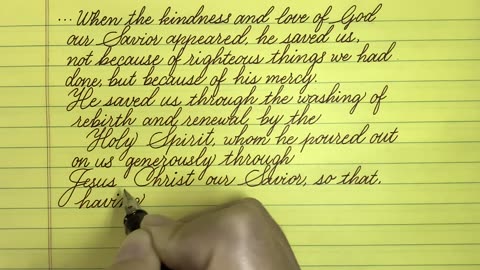 ... When the kindness and love of God
our Savior appeared, he saved us,
not because of righteous things we had
done, but because of his mercy.
He saved us through the washing of
rebirth and renewal by the
Holy Spirit, whom he poured out
on us generously through
Jesus Christ our Savior, so that,
having